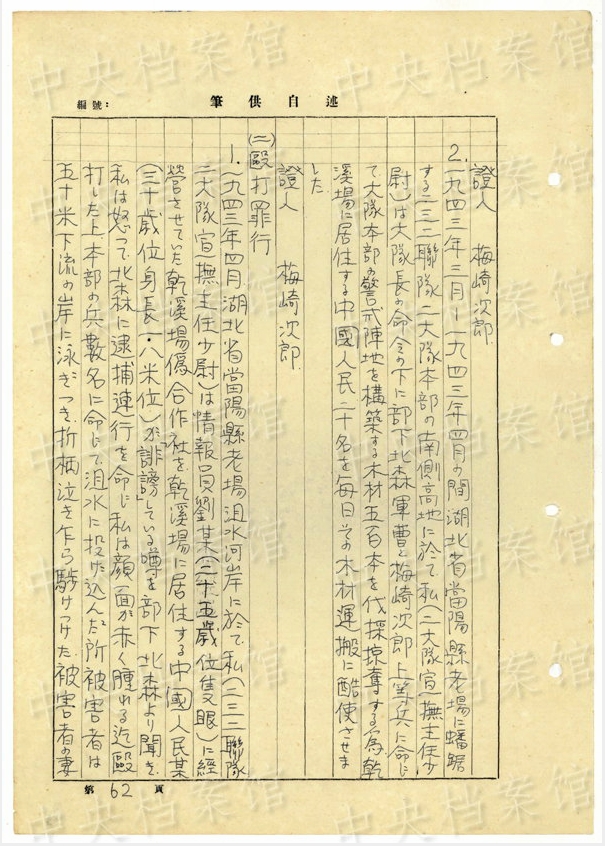 編號：
筆供自述
證人　梅崎次郎
2.一九四三年三月－一九四三年四月の間湖北省當陽縣老場に蟠踞
する二三二聯隊二大隊本部の南側高地に於て私(二大隊宣撫主任少
尉)は大隊長の命令の下に部下北森軍曹と梅崎次郎上等兵に命じ
て大隊本部の警戒陣地を構築する木材五百本を伐採掠奪する為乾
溪場に居住する中國人民二十名を毎日その木材運搬に酷使させま
した
證人　梅崎次郎
(二)毆打罪行
1.一九四三年四月湖北省當陽縣老場沮水河岸に於て私(二三二聯隊
二大隊宣撫主任少尉)は情報員劉某(二十五歳位隻眼)に經
營させていた乾溪場偽合作社を乾溪場に居住する中國人民某
(三十歳位身長一・八米位)が「誹謗」している噂を部下北森より聞き
私は怒って北森に逮捕連行を命じ私は顔面が赤く腫れる迄毆
打した上本部の兵數名に命じて沮水に投げ込んだ所被害者は
五十米下流の岸に泳ぎつき折柄泣き乍ら駈けつけた被害者の妻
第62頁
中央档案馆